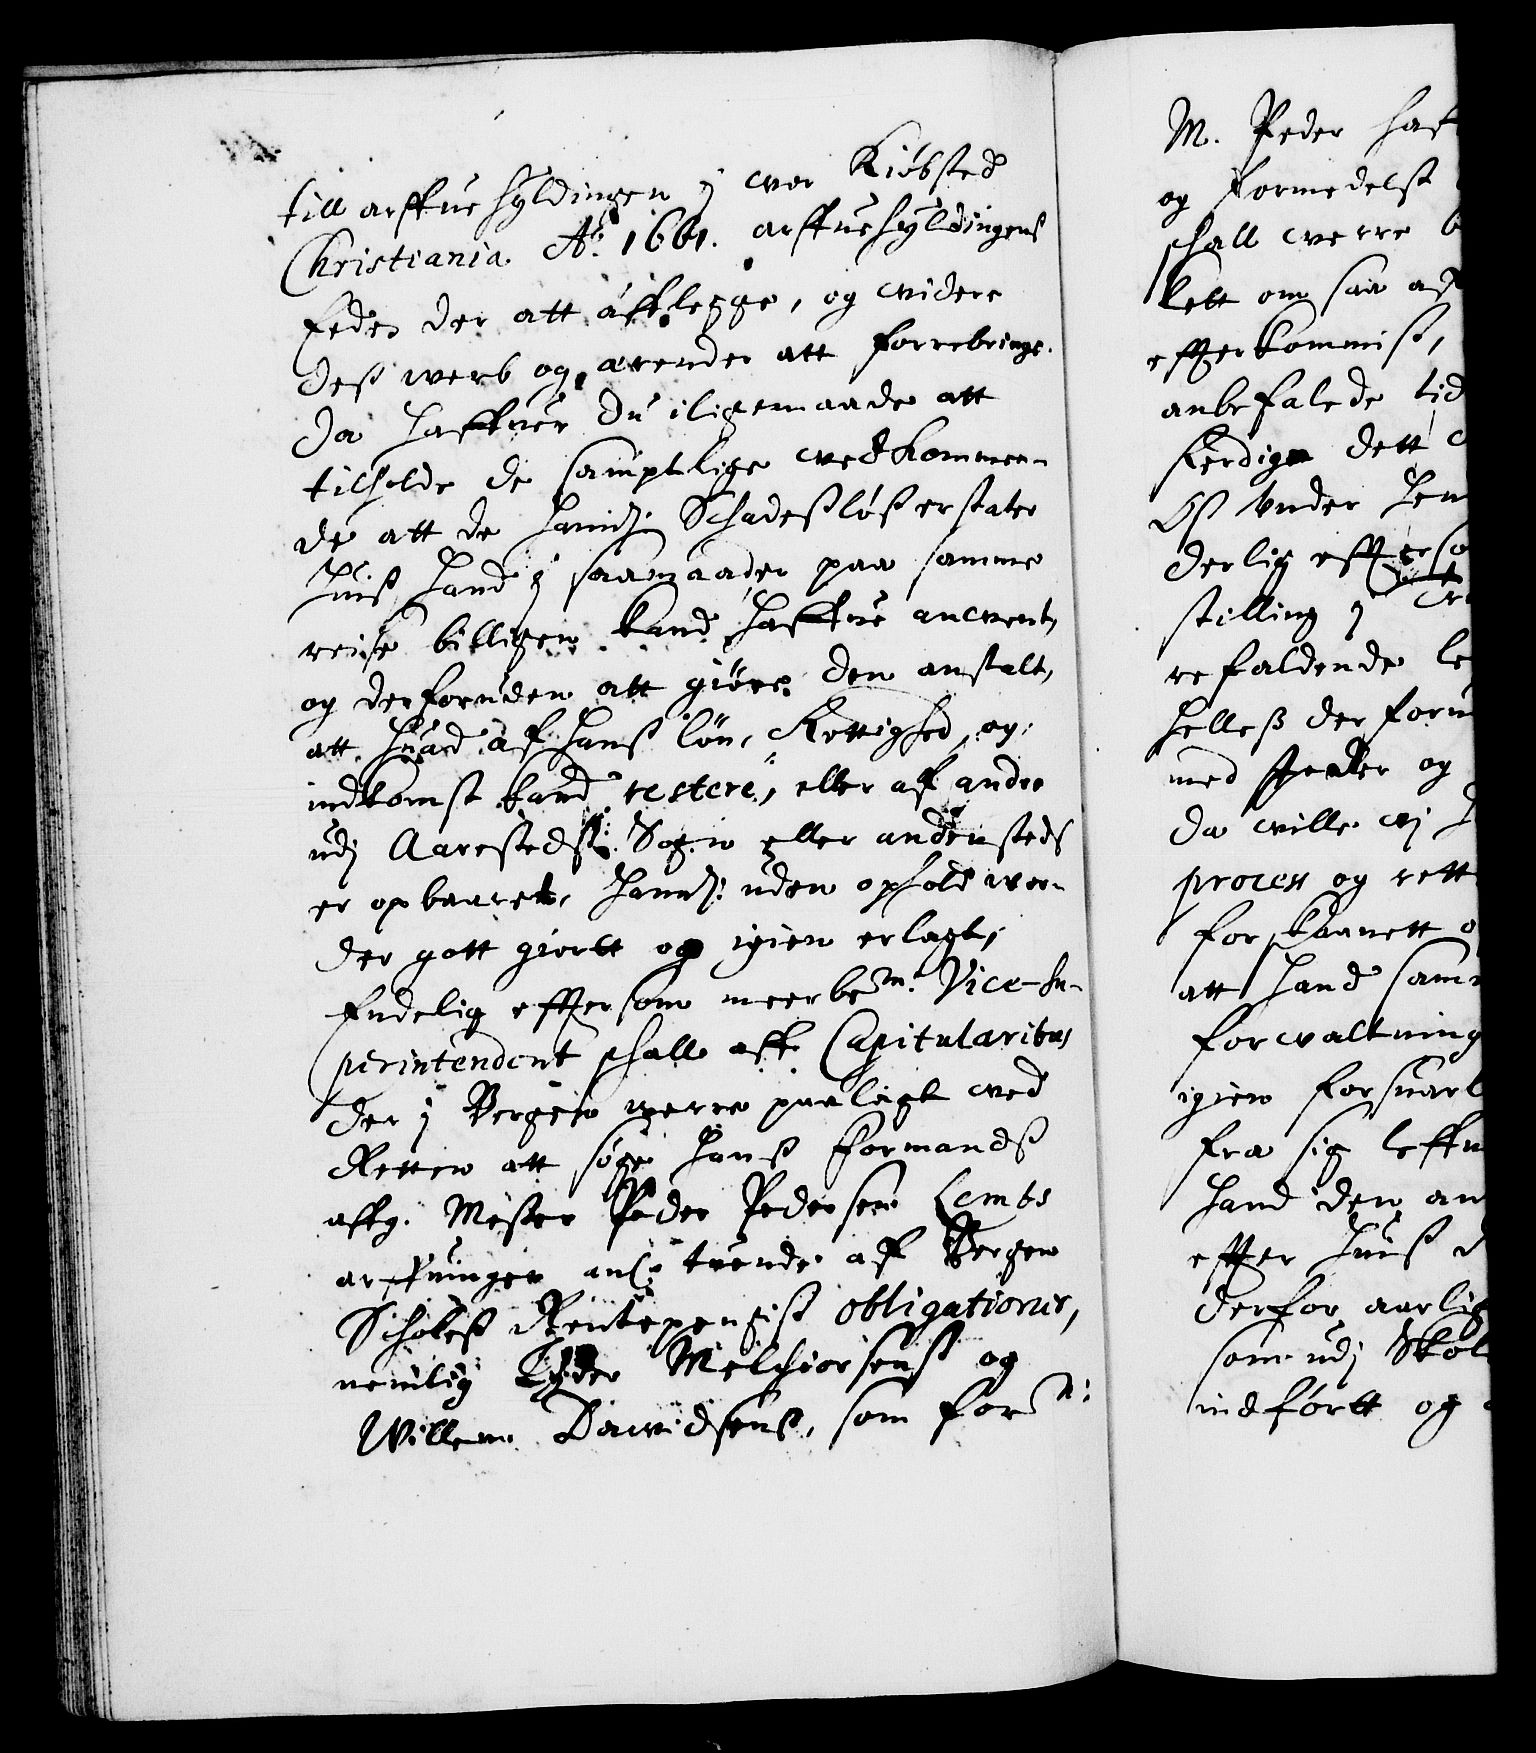 till arffue hyldingen j wor Kiöbsted
Christiania A°. 1661. arffuehyldingens
Eeden der att afflegge, og widere
dess werb og ærender att forrebringe.
Da haffuer du iligemaade att
tilholde de samptlige wedkommen-
de att de hannem Schadesslöss erstater
huiss hand j saamaader paa samme
reise billigen kand haffue anwent,
og desforuden att giöre den anstalt,
att huad af hanss lön, Rettighed og
indkomst kand restere, eller af andre
udj Aarestads Sogn eller andensteds
er opbaaret, hannem uden ophold wor-
der gott giortt og igien erlagt,
Endelig effter som meerbe.te Vice-Su-
perintendent schall aff Capitularibus
der j Bergen werre paalagt wed
Retten att söge hanss Formandss
affg. Mester Peder Pedersen Lembs
arffuinger anl: tuende af Bergen
Scholess Rentepengis obligationer,
nemlig Lyder Melchiorsenss og
Willem Dawidsenss, som for.n:
M. Peder haf
og formedelst
schall werre b
kett om saa ad
efterkommist,
anbefalede tid
ferdige dett
Os under hen
derlig efftersom
stilling j
refaldende le
helless der foru
med
da wille wj h
process og rett
forskaanett o
att hand sam
forwaltning
igien forsuarl
fra sig leffu
hand den an
effter huiss d
derfor aarlig
som udj Skol
indfortt og